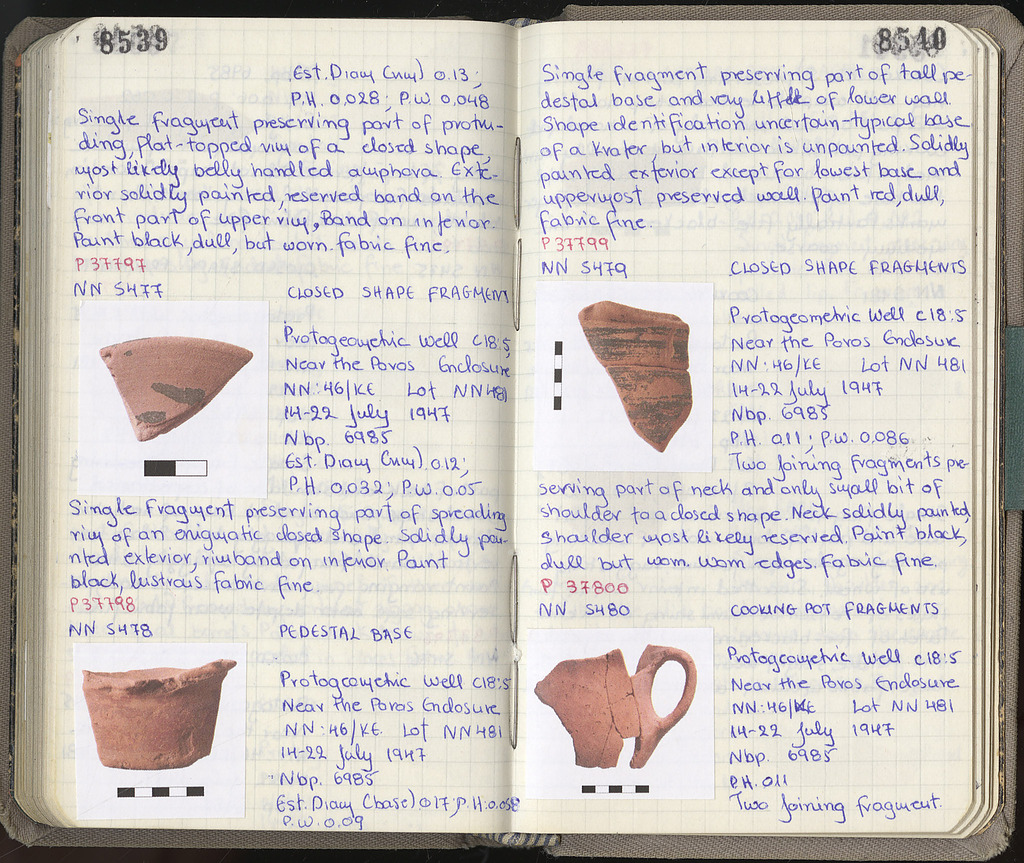 8539
Est. Diam (rim) 0.13;
P.H. 0.028; P.W. 0.048
Single fragment preserving part of protru-
ding, flat-topped rim of a closed shape,
most likely belly handled amphora. Exte-
rior solidly painted, reserved band on the
front part of upper rim, Band on interior.
Paint black, dull, but worn. fabric fine.
P 37797
NN 5477
CLOSED SHAPE FRAGMENT
Protogeometric Well C18:5,
Near the Poros Enclosure
NN:46/KE Lot NN 481
14-22 July 1947
Nbp. 6985
Est. Diam (rim) 0.12;
P.H. 0.032; P.W. 0.05
Single fragment preserving part of spreading
rim of an enigmatic closed shape. Solidly pai-
nted exterior, rimband on interior. Paint
black, lustrous fabric fine.
P37798
NN 5478
PEDESTAL BASE
Protogeometric Well C18:5
Near the Poros Enclosure
NN:46/KE Lot NN481
14-22 July 1947
Nbp. 6985
Est. Diam (base) 0.17; P.H: 0.058
P.W. 0.09
8540
Single fragment preserving part of tall pe-
destal base and very little of lower wall.
Shape identification uncertain-typical base
of a krater, but interior is unpainted. Solidly
painted exterior except for lowest base and
uppermost preserved wall. Paint red, dull,
fabric fine.
P 37799
NN 5479
CLOSED SHAPE FRAGMENTS
Protogeometric Well C18:5
Near the Poros Enclosure
NN:46/KE Lot NN 481
14-22 July 1947
Nbp. 6985
P.H. 0.11; P.W. 0.086
Two joining fragments pre-
serving part of neck and only small bit of
shoulder to a closed shape. Neck solidly painted,
shoulder most likely reserved. Paint black,
dull but worn. Worn edges. Fabric fine.
P 37800
NN 5480
COOKING POT FRAGMENTS
Protogeometric Well C18:5
Near the Poros Enclosure
NN:46/KE Lot NN 481
14-22 July 1947
Nbp. 6985
P.H. 0.11
Two joining fragment.